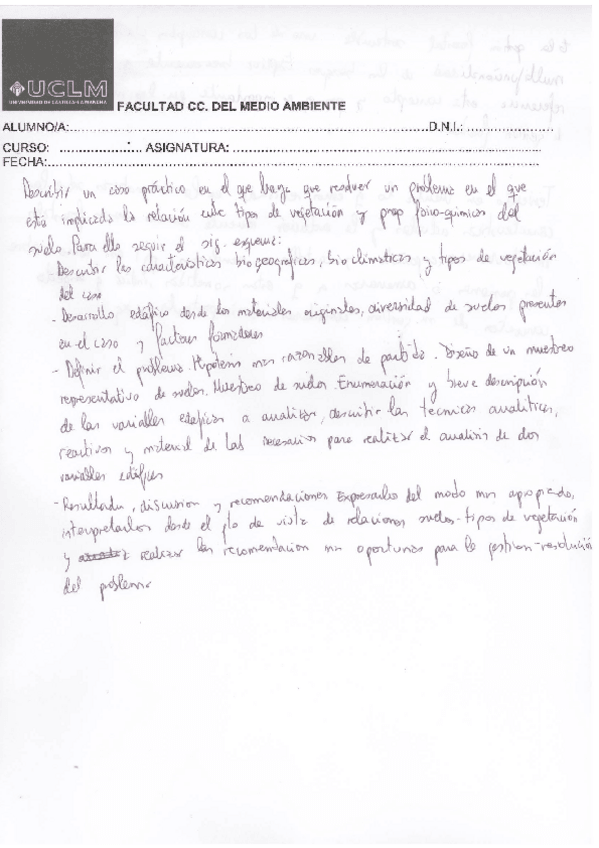 UCLM
UNIVERSIDAD DE CASTILLA-LA MANCHA
FACULTAD CC. DEL MEDIO AMBIENTE
ALUMNO/A:..........D.N.I.: ..........
CURSO: .......... ASIGNATURA: ..........
FECHA:..........
Describir un caso práctico en el que haya que resolver un problema en el que
está implicado la relación entre tipos de vegetación y prop fisico-quimicas del
suelo. Para ello seguir el sig. esquema:
Describir las características biogeográficas, bioclimáticas y tipos de vegetación
del caso
- Desarrollo edáfico desde los materiales originales, diversidad de suelos presentes
en el caso y factores formadores
- Definir el problema. Hipótesis mas razonables de partida. Diseño de un muestreo
representativo de suelos. Muestreo de suelos. Enumeración y breve descripción
de las variables edáficas a analizar, describir las técnicas analíticas,
reactivos y material de lab necesarios para realizar el analisis de dos
variables edáficas
- Resultados, discusion y recomendaciones Expresarlos del modo mas apropiado,
interpretarlos desde el pto de vista de relaciones suelos-tipos de vegetación
y realizar las recomendacion mas oportunas para la gestion-resolución
del problema